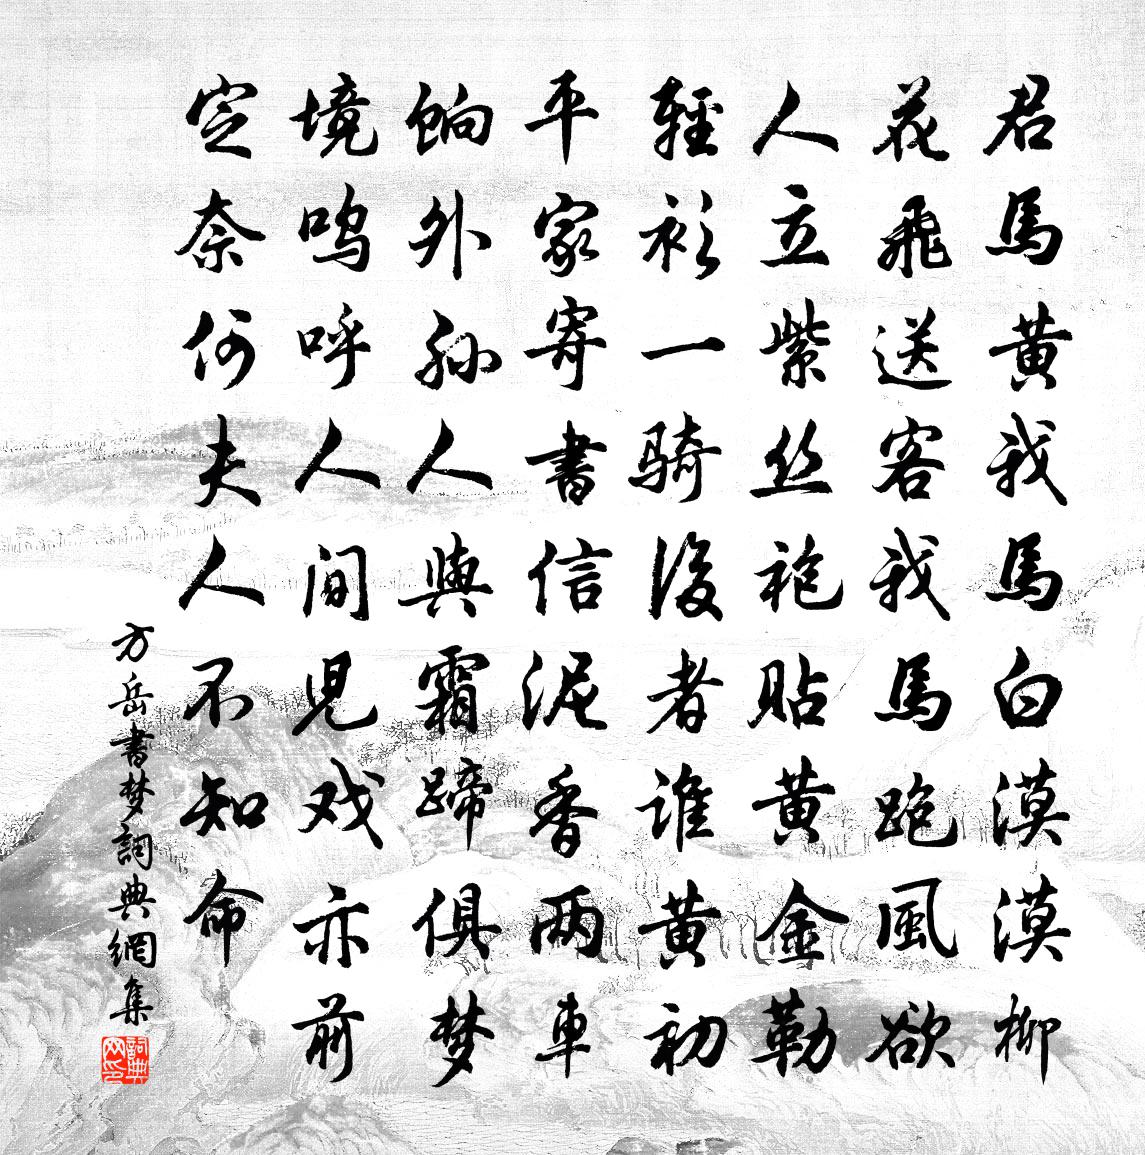 君馬黄我馬白漠漠柳
花飛送客我馬跑風欲
人立紫丝袍贴黄金勒
輕衫一骑後者谁黄初
平家寄書信泥香两車
餉外孫人與霜蹄俱梦
境呜呼人間兒戏亦前
定奈何夫人不知命
方岳書梦詞典網集
詞典网印